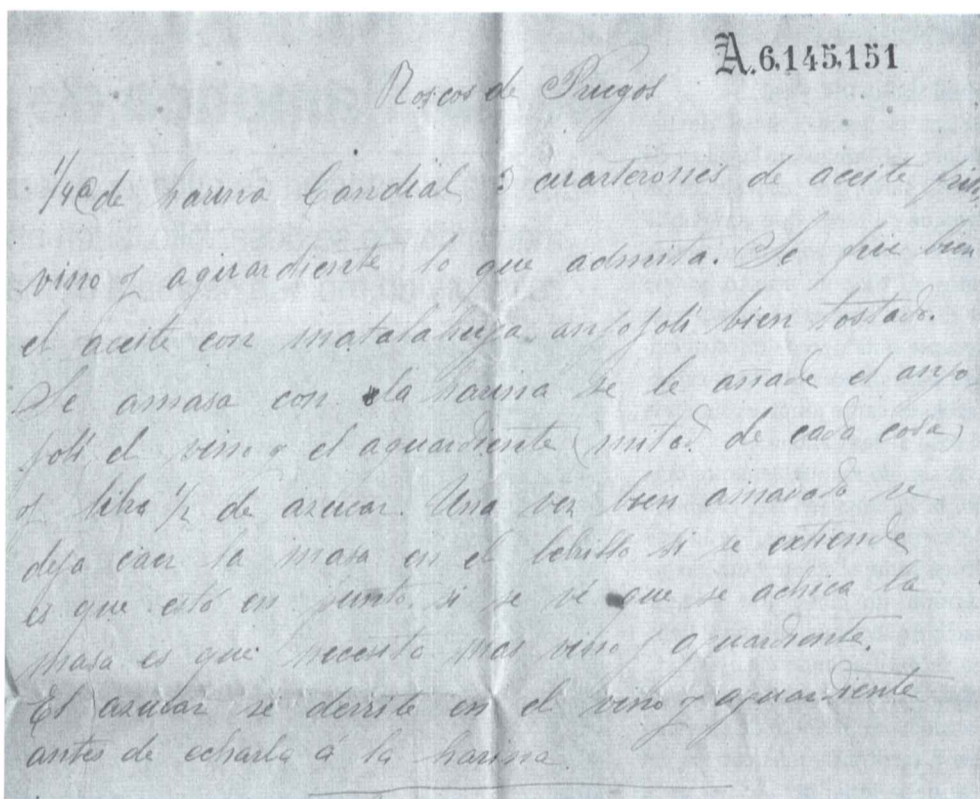 A.6.145.151
Roscos de Priegos
1/4@ de harina Candial 3 cuarterones de aceite frito
vino y aguardiente lo que admita. Se frie bien
el aceite con matalahuga, anjofolí bien tostado.
Se amasa con la harina se le añade el anjo
folí, el vino y el aguardiente (mitad de cada cosa)
y libra 1/2 de azucar. Una vez bien amasado se
deja caer la masa en el lebrillo si se extiende
es que está en punto, si se vé que se achica la
masa es que necesita mas vino y aguardiente.
El azucar se derrite en el vino y aguardiente
antes de echarla á la harina.